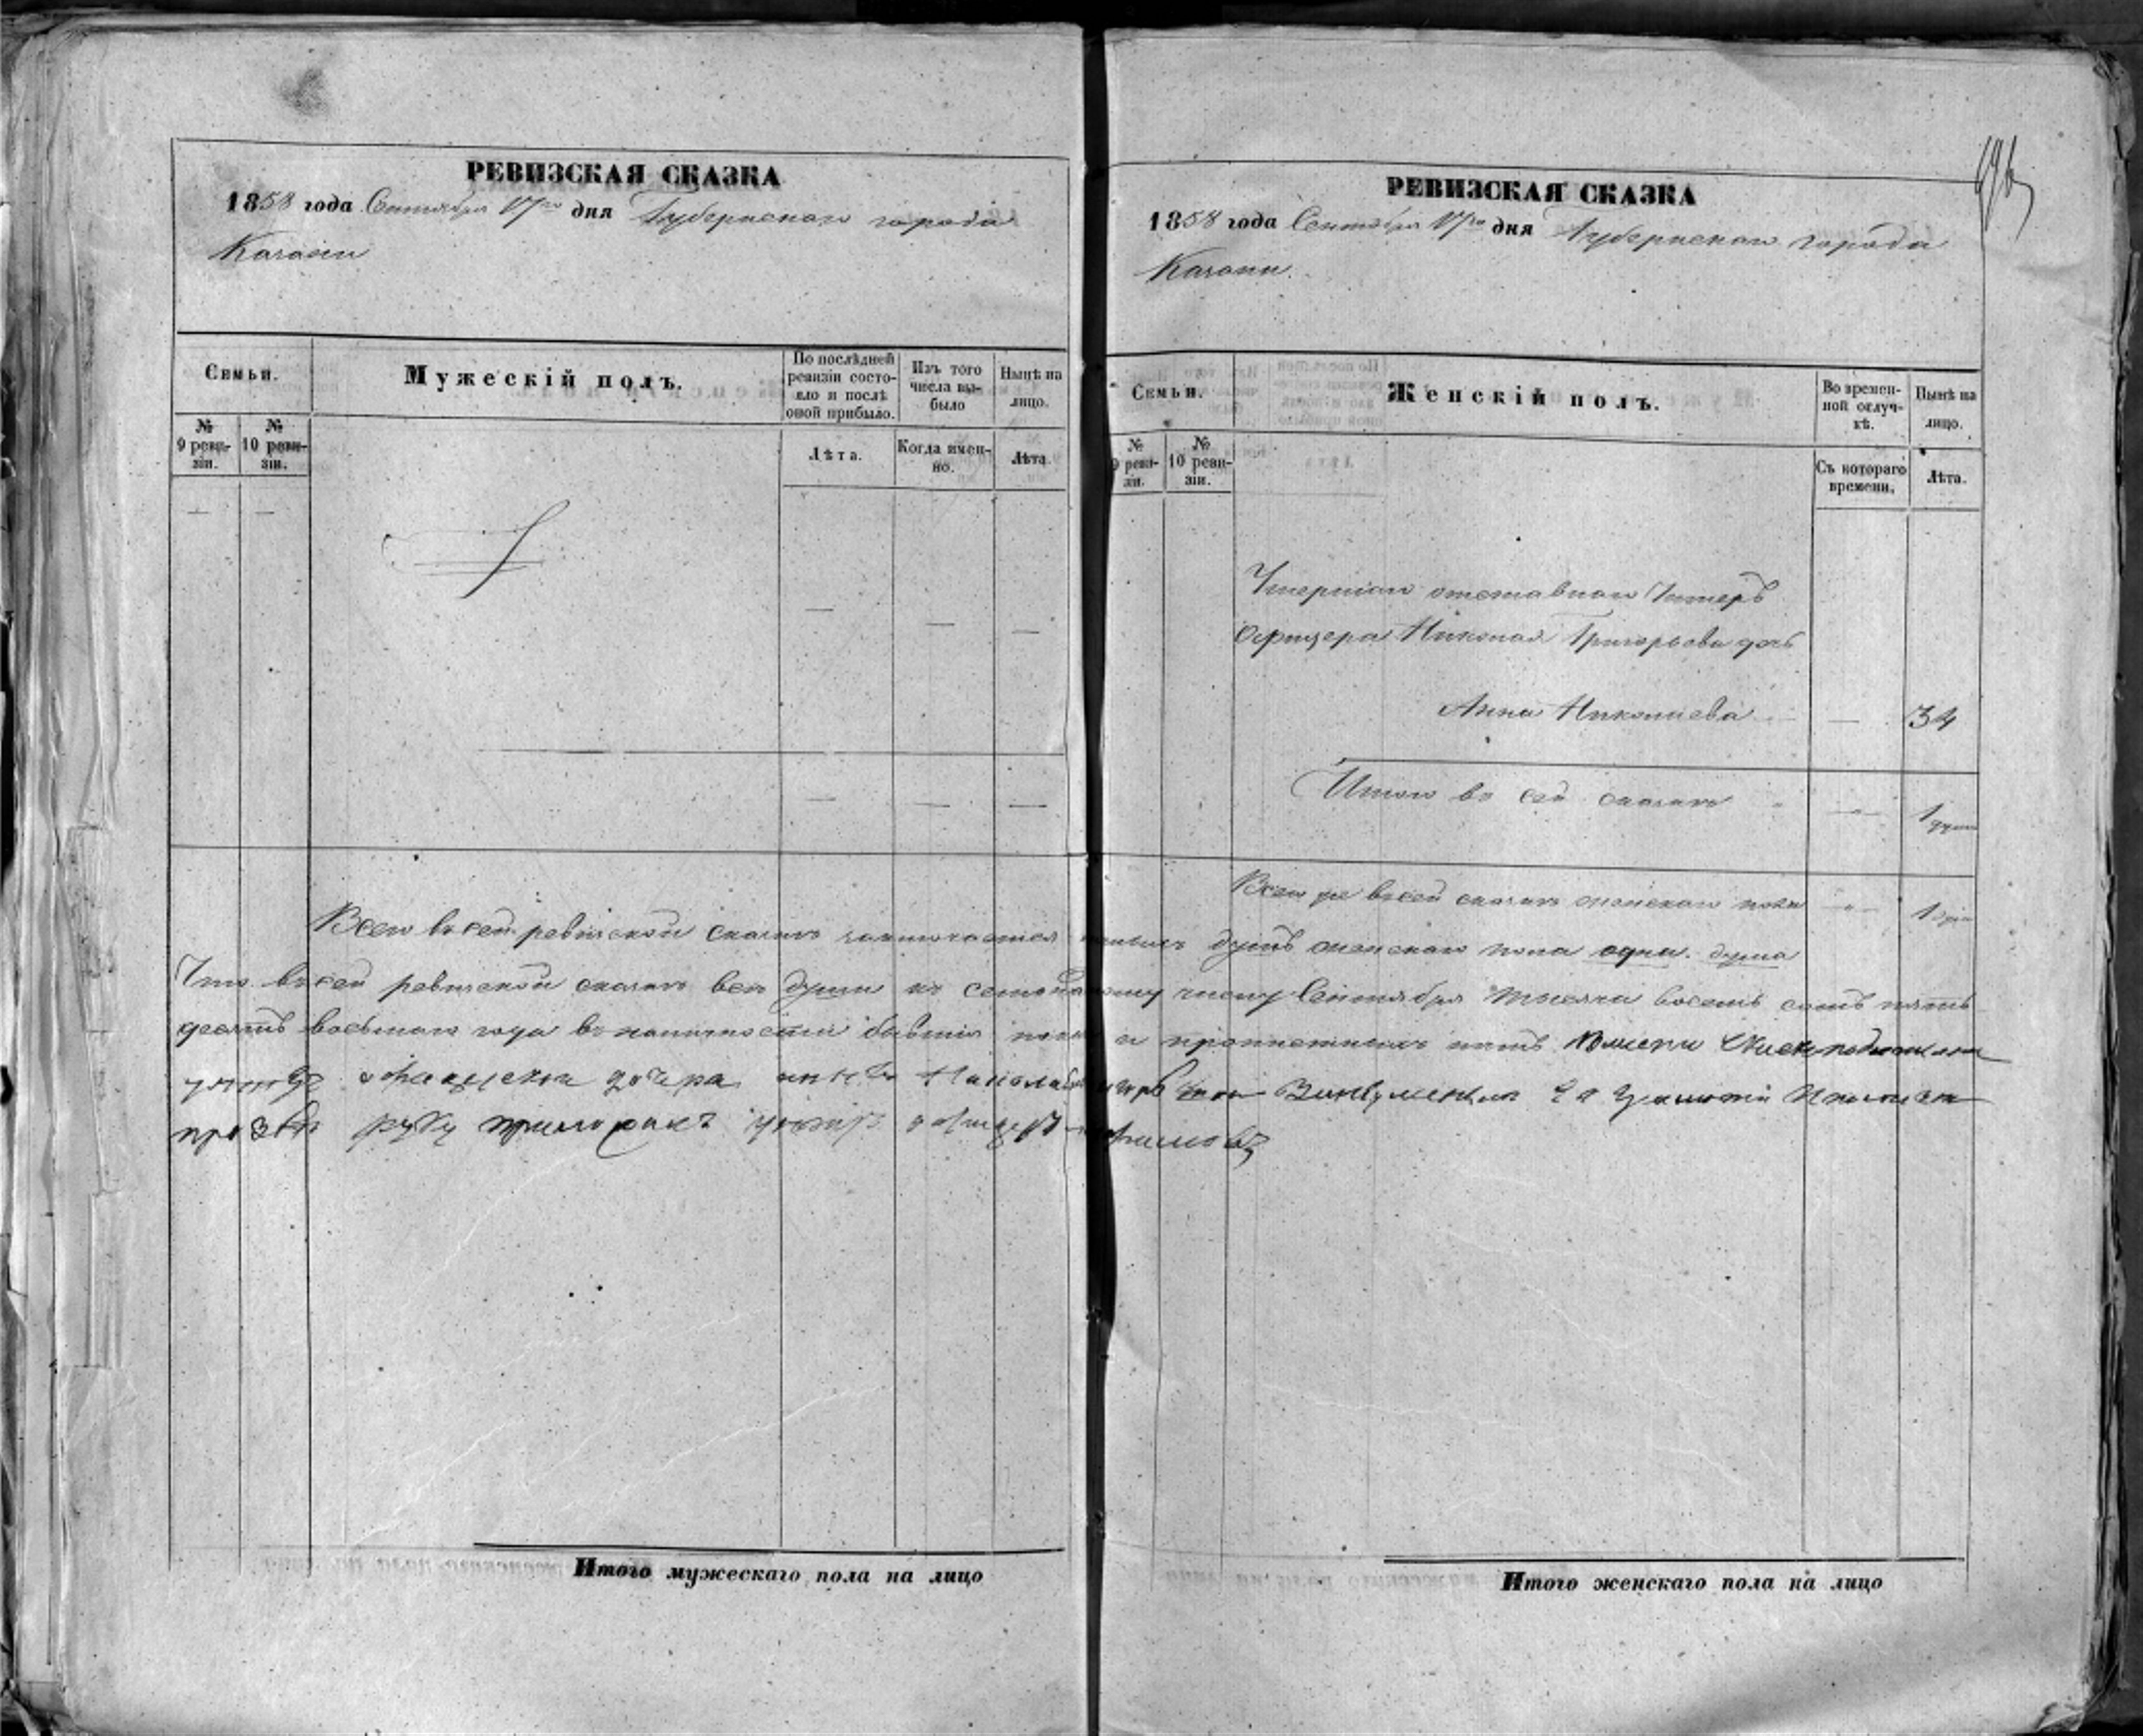 РЕВИЗСКАЯ СКАЗКА
1858 года Сентября 17го дня Губернскаго города
Казани
Семьи.
Мужескій полъ.
По послѣдней ревизіи состояло и послѣ оной прибыло.
Изъ того числа выбыло
Нынѣ на лицо.
№ 9 ревизіи.
№ 10 ревизіи.
Лѣта.
Когда именно.
Лѣта.
РЕВИЗСКАЯ СКАЗКА
1858 года Сентября 17го дня Губернскаго города
Казани.
Семьи.
Женскій полъ.
Во временной отлучкѣ.
Нынѣ на лицо.
№ 9 ревизіи.
№ 10 ревизіи.
Съ котораго времени.
Лѣта.
Умершаго отставнаго Унтеръ
Офицера Николая Григорьева дочь
Анна Николаева — 34
Итого въ сей сказкѣ 1 душа
Всего же въ сей сказкѣ женскаго пола 1
Всего въ сей ревизской сказкѣ заключается душъ женскаго пола одна душа
Что въ сей ревизской сказкѣ всѣ души къ числу Сентября тысяча восемь сотъ пять
десятъ восьмаго года въ наличности бывшія и прописныхъ нѣтъ
унтеръ дочера
руку унтеръ офицеръ
Итого мужескаго пола на лицо
Итого женскаго пола на лицо